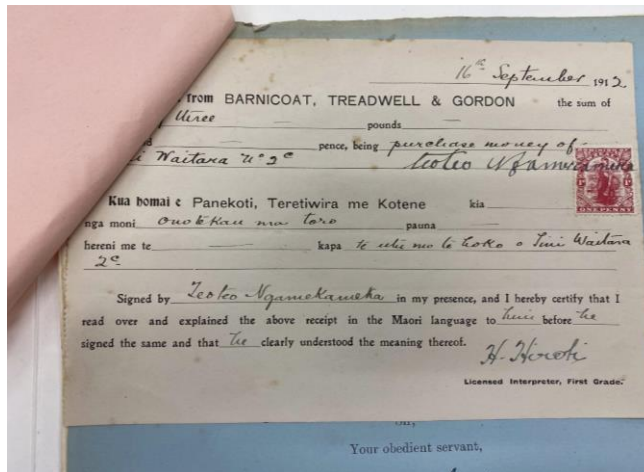 16th September 1912
from BARNICOAT, TREADWELL & GORDON the sum of
three pounds
pence, being purchase money of
Waitara No 2c Teoteo Ngamekameka
ONE PENNY
Kua homai e Panekoti, Teretiwira me Kotene kia
nga moni onotekau ma toro pauna
hereni me te kapa te utu mo te hoko o Waitara
2c
Signed by Teoteo Ngamekameka in my presence, and I hereby certify that I
read over and explained the above receipt in the Maori language to him before he
signed the same and that he clearly understood the meaning thereof.
H.
Licensed Interpreter, First Grade.
Sir,
Your obedient servant,